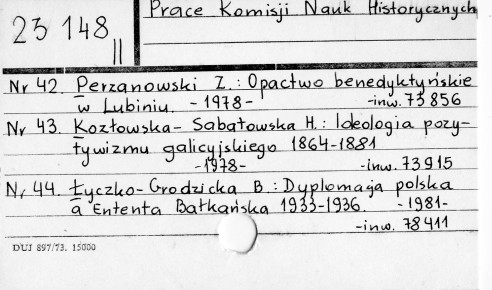 Prace Komisji Nauk Historycznych
23 148 II
Nr 42. Perzanowski Z.: Opactwo benedyktyńskie
w Lubiniu. -1978- -inw. 75856
Nr 43. Kozłowska-Sabatowska H.: Ideologia pozy-
tywizmu galicyjskiego 1864-1881
-1978- -inw. 73915
Nr 44. Łyczko-Grodzicka B.: Dyplomacja polska
a Ententa Bałkańska 1933-1936. -1981-
-inw. 78411
DUJ 897/73. 15000